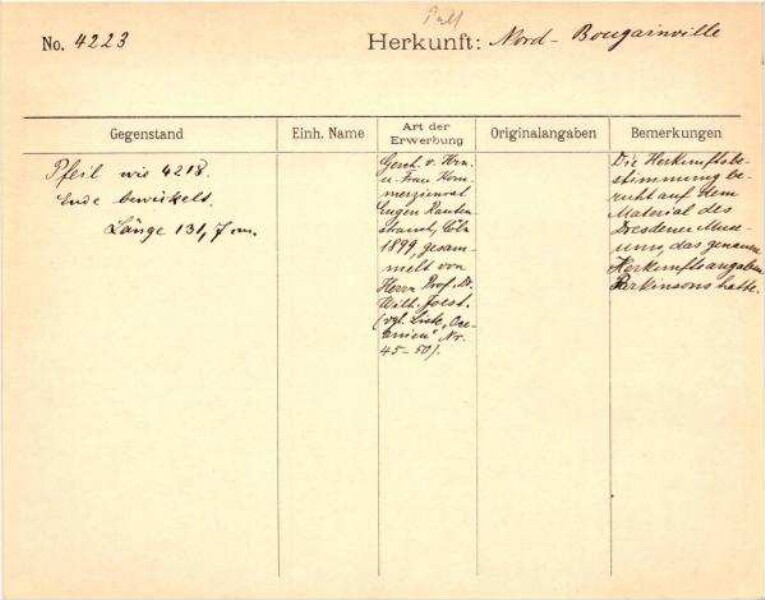 No. 4223
Herkunft: Nord-Bougainville
Gegenstand
Einh. Name
Art der Erwerbung
Originalangaben
Bemerkungen
Pfeil wie 4218.
Ende bewickelt.
Länge 131,7 cm.
Gesch. v. Hrn.
u. Frau Kom-
merzienrat
Eugen Rauten-
strauch, Cöln
1899, gesam-
melt von
Herrn Prof. Dr.
Wilh. Joest.
(vgl. Liste „Oce-
anien" Nr.
45-50).
Die Herkunftsbe-
stimmung be-
ruht auf dem
Material des
Dresdener Muse-
ums, das genaue
Herkunftsangaben
Parkinsons hatte.